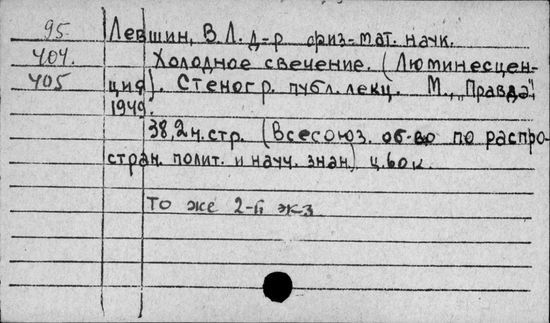 95 Левшин, В.Л. д-р физ-мат. наук.
404. Холодное свечение. (Люминесцен-
405 ция). Стеногр. публ. лекц. М., „Правда",
1949.
38,2н.стр. (Всесоюз. об-во по распро-
стран. полит. и научн. знан.) ц. 60 к.
То же 2-й экз.